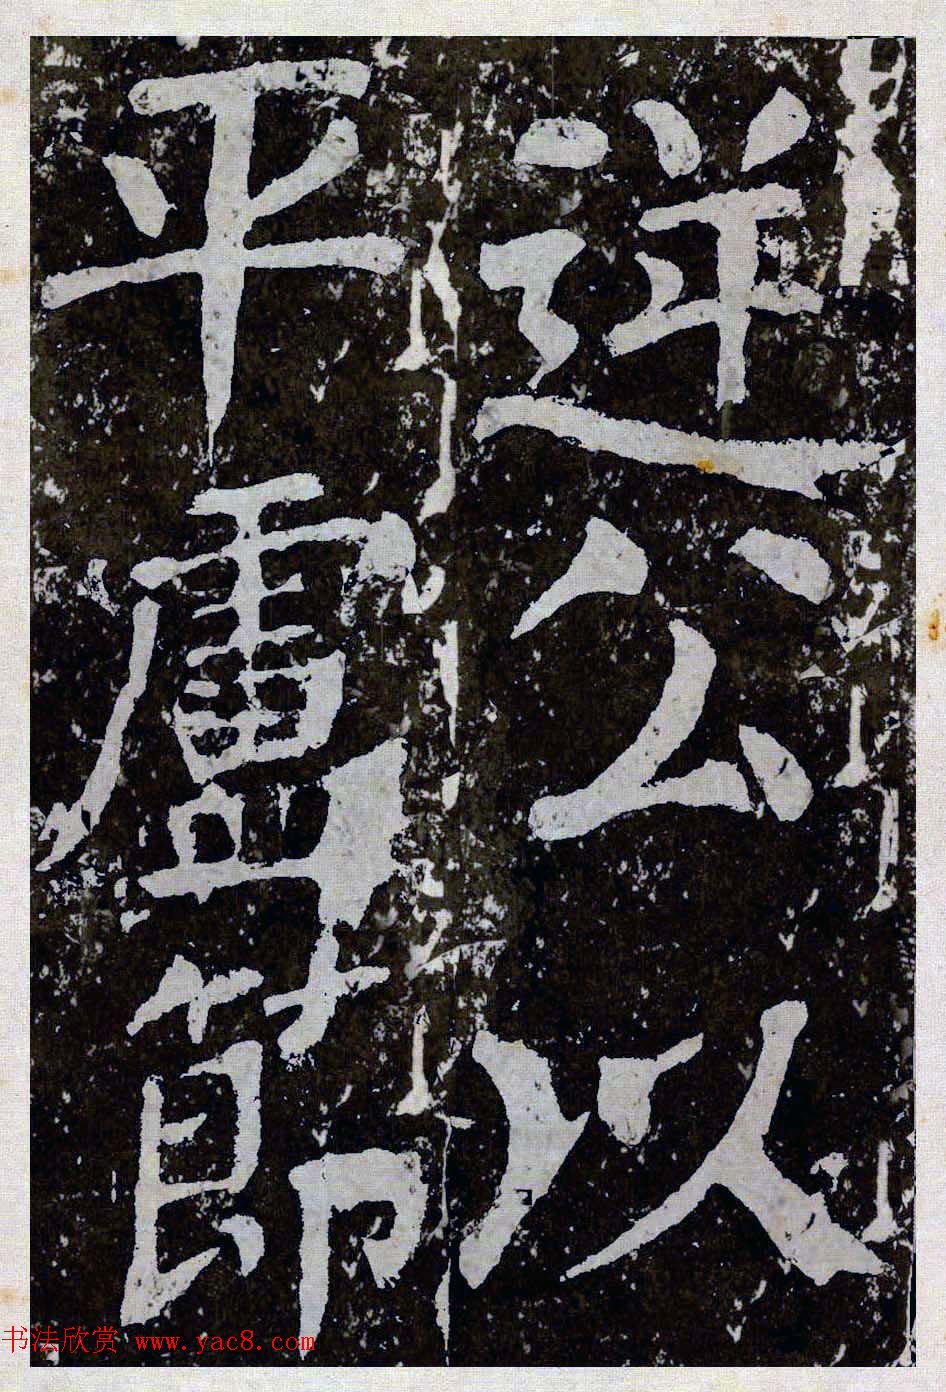 逆公以
平盧節
书法欣赏 www.yac8.com